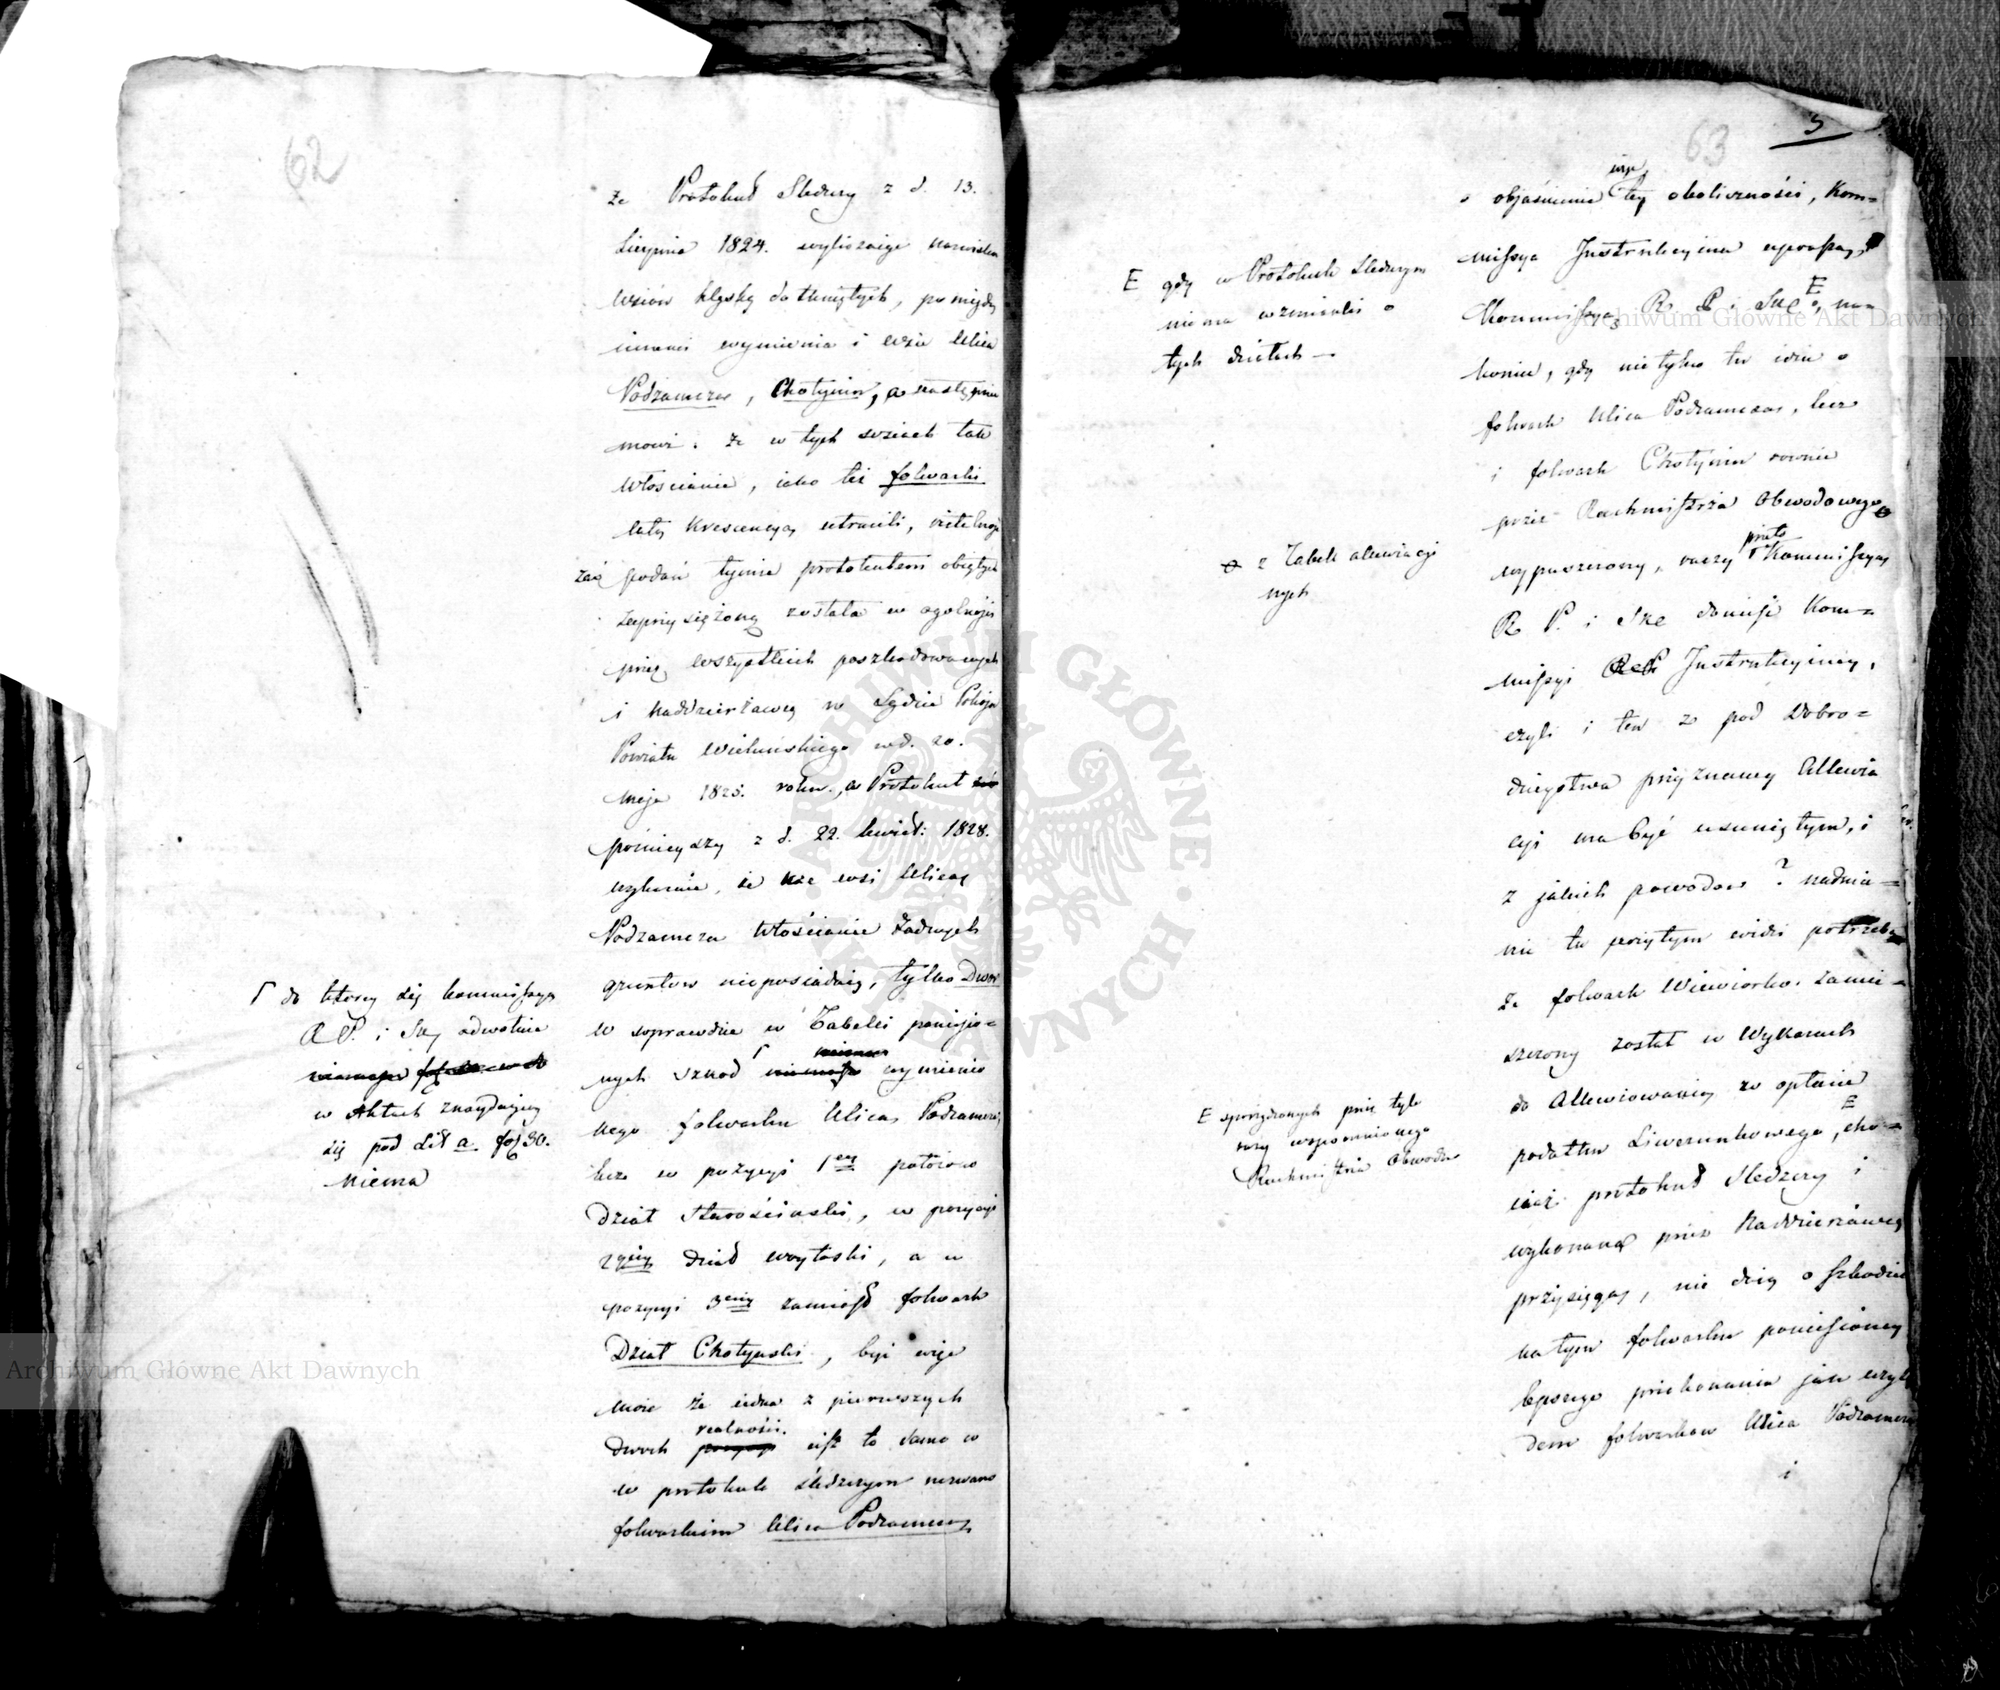 62
że Protokuł Sledczy z d. 13.
Sierpnia 1824. wyliczaiąc nazwiska
wsiów klęską dotkniętych, pomiędzy
innemi wymienia i wsie Ulica
Podzamcze, Chotynin, a następnie
mowi: że w tych wsiach tak
włoscianie, iako też folwarki
całą krescencyą utracili, rzetelność
zaś podań tymże protokułem obiętych
zaprzysiężoną została w ogolności
przez wszystkich poszkodowanych
i Naddzierżawcę w Sądzie Pokoju
Powiatu Wieluńskiego w d. 20.
Maja 1825. roku, a Protokuł
pozniejszy z d. 22. kwiet: 1828.
wykazuie, że we wsi Ulica
Podzamcza Włościanie żadnych
gruntow nieposiadaią, tylko Dwor
W soprawdzie w Tabelli poniesio=
nych szkod Γ wymienio
nego folwarku Ulica Podzamcze,
lecz w pozycyi 1ey położono
Dział Starościnski, w pozycyi
2giey dział woytoski, a w
pozycyi 3ciey zamiast folwark
Dział Chotynski, być więc
może że iedna z pierwszych
realności.
dwoch iest to samo co
w protokule śledczym nazwano
folwarkiem Ulica Podzamcze
Γ do ktorey się kommissya
R P. i Sk. odwołuie
w Aktach znayduiącey
się pod Lit a fol 30.
niema
63
5
o objaśnienie tey okoliczności, Kom=
missya Instrukcyina uprasza
Kommissyą R P i Ske E, na
koniec, gdy nie tylko tu idzie o
folwark Ulica Podzamcze, lecz
i folwark Chotynin rownie
przez Rachmistrza Obwodowego
wypuszczony, raczy Kommissya
R P. i Ske donieść Kom=
missyi Instrukcyiney,
czyli i ten z pod Dobro=
dzieystwa przyznaney Allewia
cyi ma być usuniętym, i
z jakich powodow? nadmie=
nia tu przytym widzi potrzebę
że folwark Wiewiorka zamie=
szczony został w Wykazach
do Allewiowania w opłacie
podatku Liwerunkowego, E cho=
ciaż protokuł Sledczy i
wykonana przez Naddzierżawcę
przysięga, nie daią o szkodzie
na tym folwarku poniesioney
lepszego przekonania jak wzglę
dem folwarkow Ulica Podzamcze
i
E gdy w Protokule Sledczym
niema wzmianki o
tych działach —
z Tabelli alewiacyi
nych
E sporządzonych przez tyle
razy wspomnionego
Rachmistrza Obwodu
Archiwum Główne Akt Dawnych
Archiwum Główne Akt Dawnych
ARCHIWUM GŁÓWNE AKT DAWNYCH